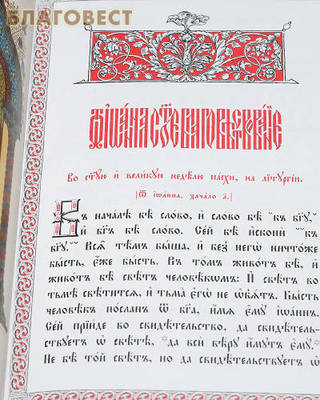 БЛАГОВЕСТ
Во ст҃ꙋю и҆ вели́кꙋю недѣ́лю па́схи, на лїтꙋргі́и.
[Ѿ і҆ѡа́нна, зача́ло а҃.]
Въ нача́лѣ бѣ̀ сло́во, и҆ сло́во бѣ̀ къ бг҃ꙋ,
и҆ бг҃ъ бѣ̀ сло́во. Се́й бѣ̀ и҆сконѝ къ
бг҃ꙋ. Всѧ̑ тѣ́мъ бы́ша, и҆ без̾ негѡ̀ ничто́же
бы́сть, є҆́же бы́сть. Въ то́мъ живо́тъ бѣ̀, и҆
живо́тъ бѣ̀ свѣ́тъ человѣ́кѡмъ. И҆ свѣ́тъ во
тьмѣ̀ свѣ́титсѧ, и҆ тьма̀ є҆гѡ̀ не ѡ҆б̾ѧ́тъ. Бы́сть
человѣ́къ по́сланъ ѿ бг҃а, и҆́мѧ є҆мꙋ̀ і҆ѡа́ннъ.
Се́й прїи́де во свидѣ́тельство, да свидѣ́тель-
ствꙋетъ ѡ҆ свѣ́тѣ, да всѝ вѣ́рꙋ и҆́мꙋтъ є҆мꙋ̀.
Не бѣ̀ то́й свѣ́тъ, но да свидѣ́тельствꙋетъ ѡ҆